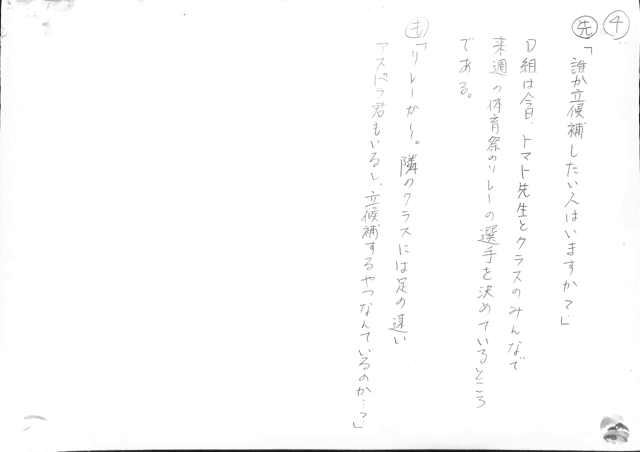 ④
先「誰か立候補したい人はいますか?」
D組は今日、トマト先生とクラスのみんなで
来週の体育祭のリレーの選手を決めているところ
である。
も「リレーか〜。隣のクラスには足の速い
アスパラ君もいるし、立候補するやつなんているのか…?」